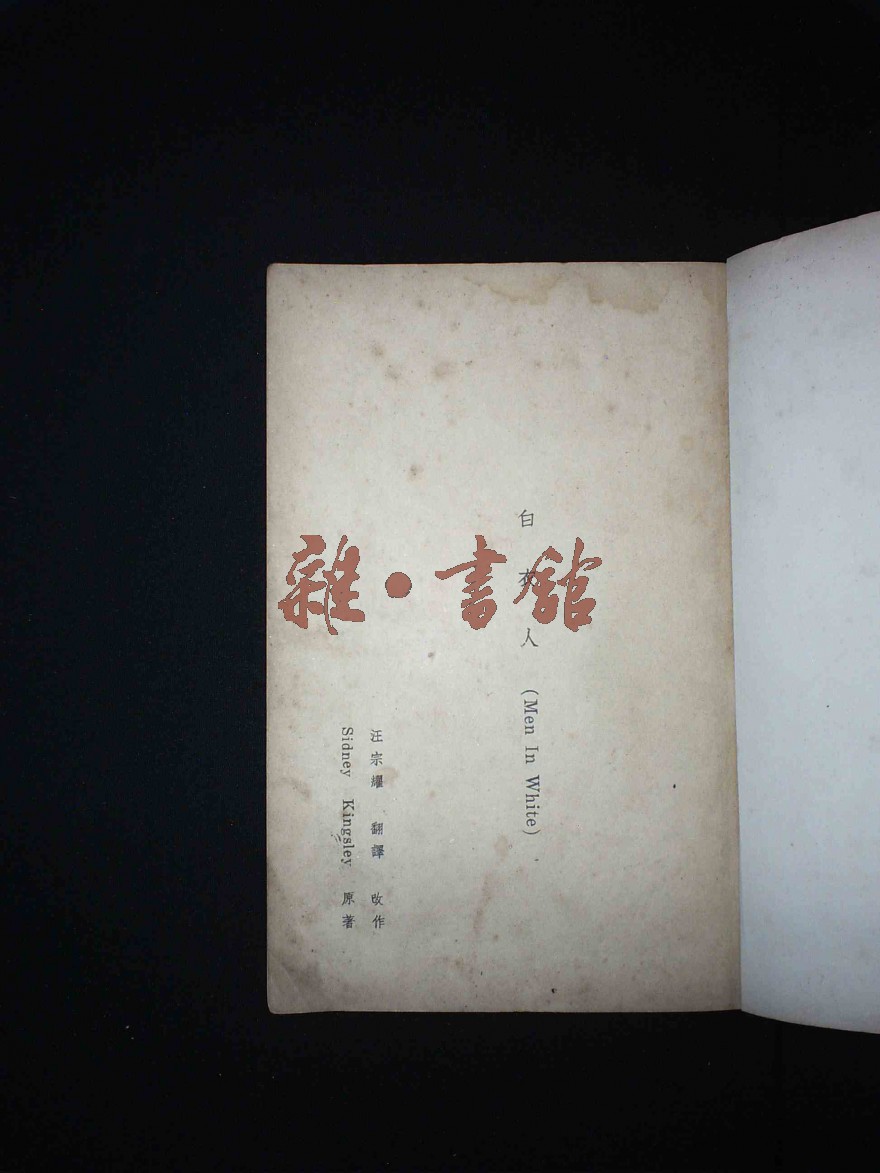 白衣人 (Men In White)
汪宗耀 翻譯 改作
Sidney Kingsley 原著
雜·書館